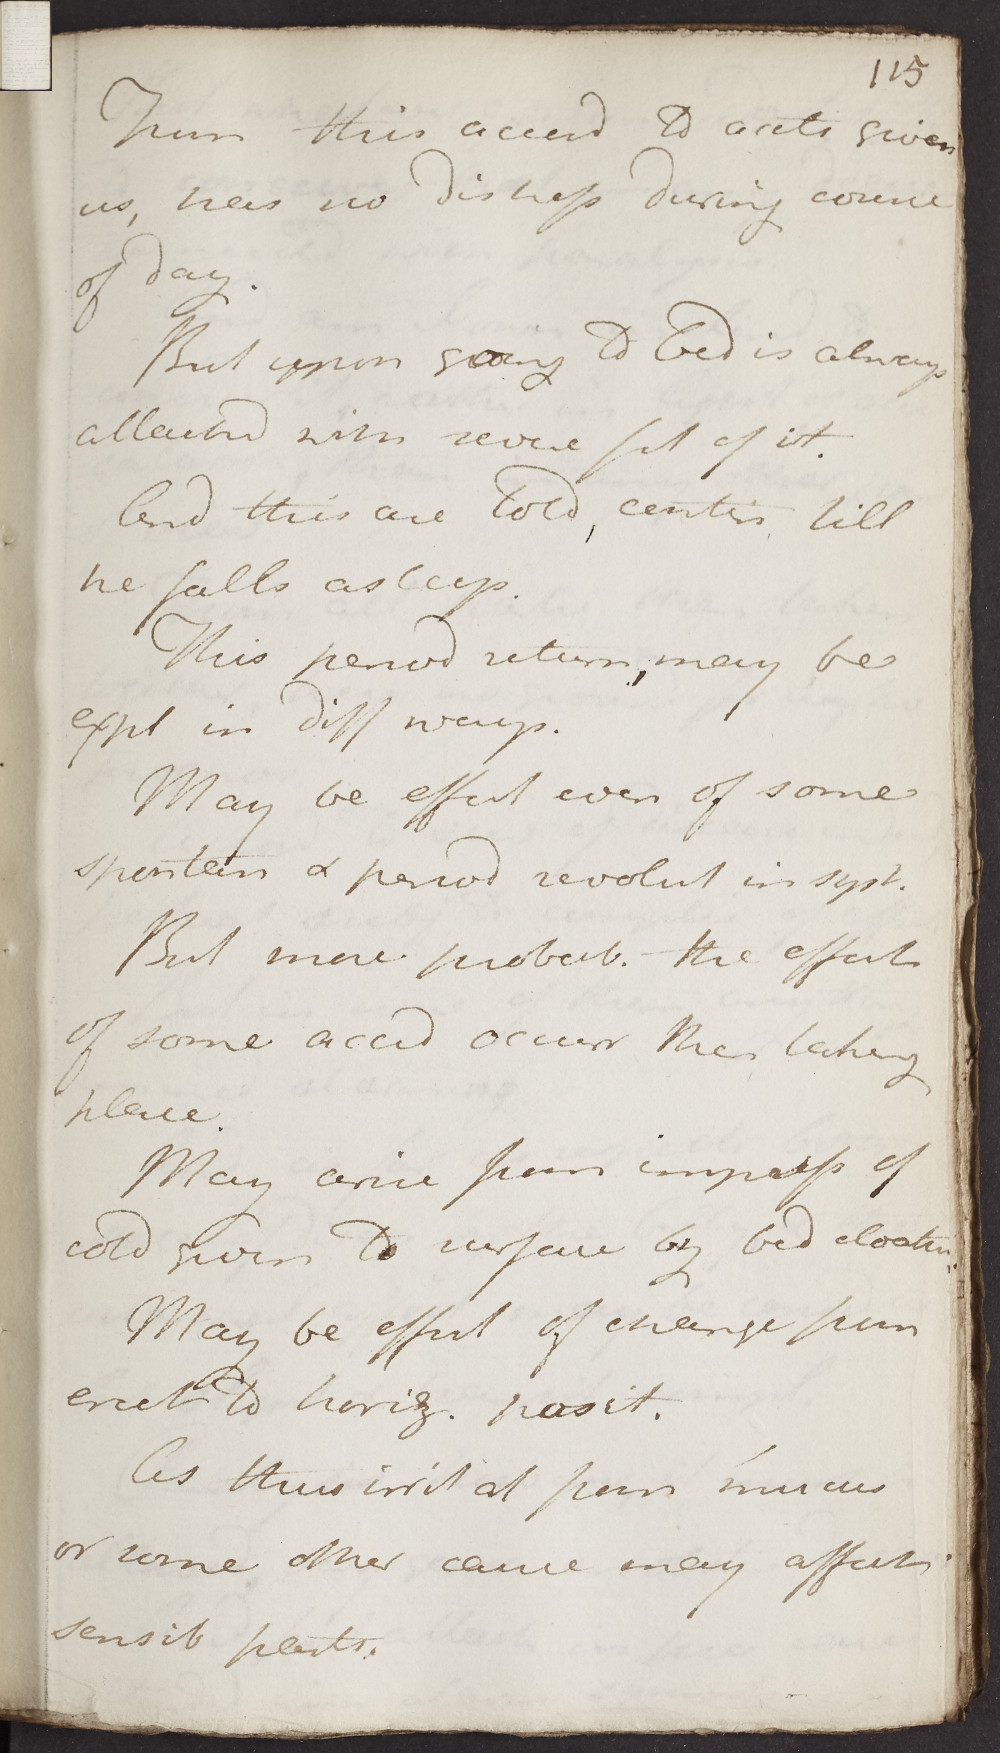 115
From this accord to accts given
us, has no distress during course
of day.
But upon going to bed is always
attackd with severe fit of it.
And this are told, contin, till
he falls asleep.
This period return, may be
expl in diff ways.
May be effect even of some
spontan & period revolut in syst.
But more probab. the effect
of some accid occurr then taking
place.
May arise from impress of
cold given to surface by bed cloaths.
May be effect of change from
erect to horiz. posit.
As thus irrit at from mucus
or some other cause may affect
sensib parts.